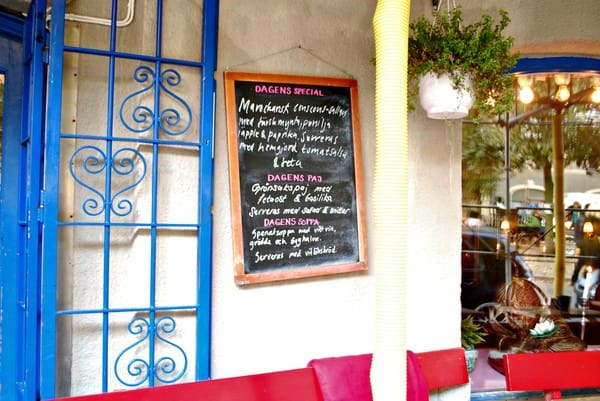 DAGENS SPECIAL
Marockansk couscous-sallad
med färsk mynta, persilja
äpple & paprika. Serveras
med hemgjord tomatsalsa
& feta
DAGENS PAJ
Grönsakspaj med
fetaost & basilika
Serveras med sallad &
DAGENS SOPPA
Spenatsoppa med vitt vin,
grädde och ägghalva.
Serveras med vitlöksbröd